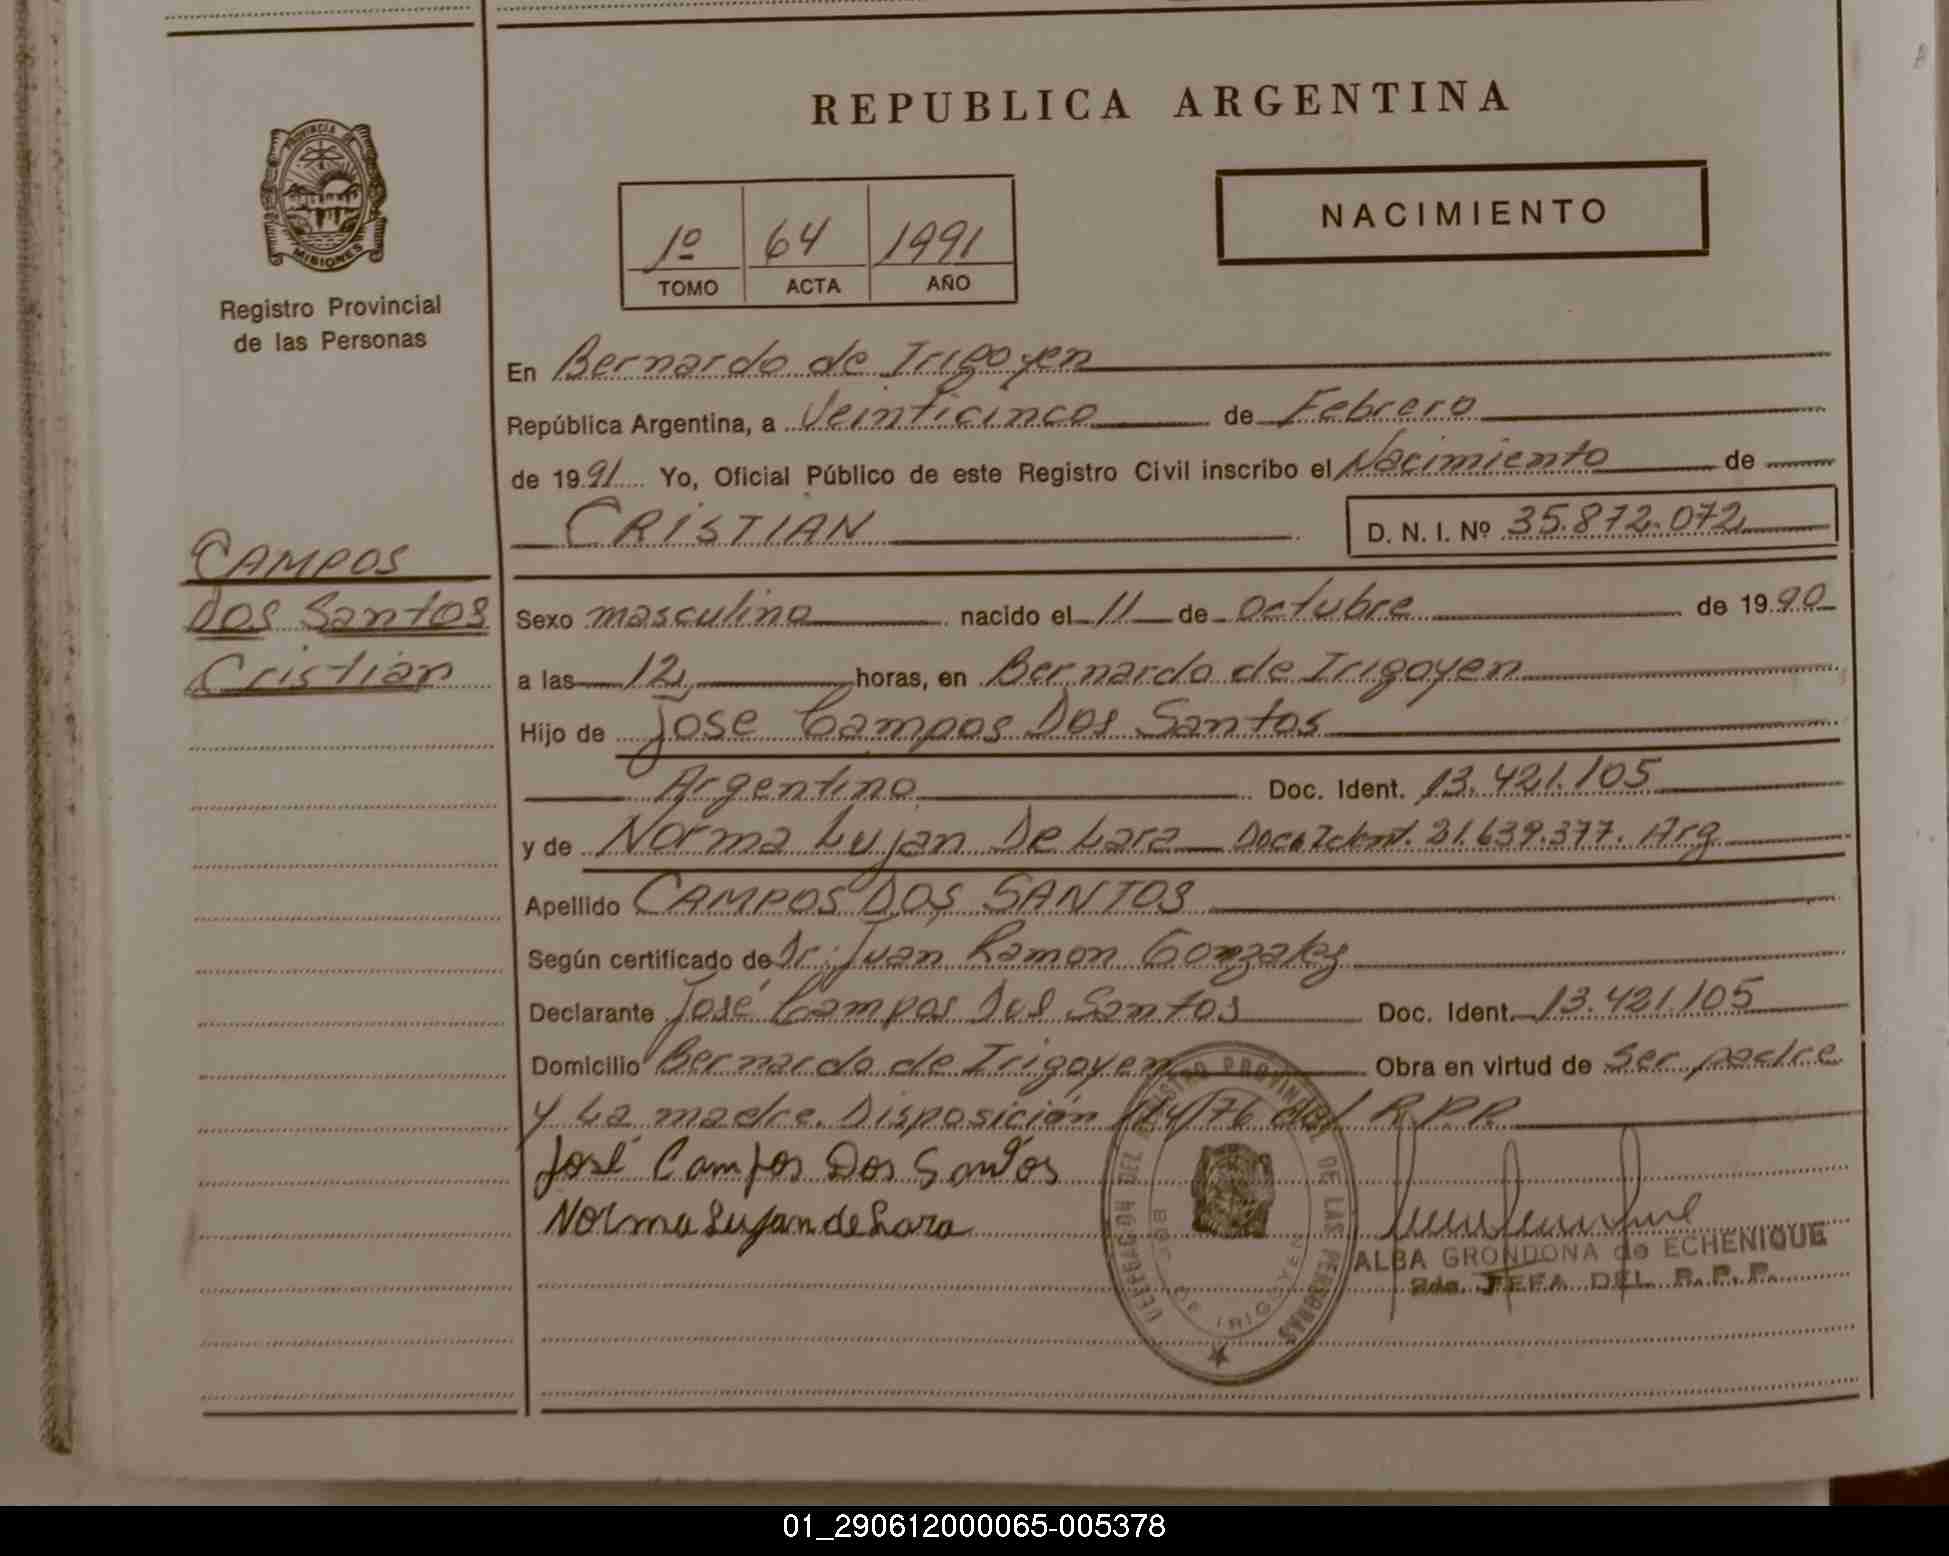 REPUBLICA ARGENTINA
PROVINCIA DE
MISIONES
Registro Provincial
de las Personas
1º 64 1991
TOMO ACTA AÑO
NACIMIENTO
CAMPOS
Dos Santos
Cristian
En Bernardo de Irigoyen
República Argentina, a Veinticinco de Febrero
de 1991 Yo, Oficial Público de este Registro Civil inscribo el Nacimiento de
CRISTIAN D. N. I. Nº 35.872.072
Sexo masculino nacido el 11 de octubre de 1990
a las 12 horas, en Bernardo de Irigoyen
Hijo de Jose Campos Dos Santos
Argentino Doc. Ident. 13.421.105
y de Norma Lujan De Lara Doc. Ident. 21.639.377. Arg
Apellido CAMPOS DOS SANTOS
Según certificado de Dr. Juan Ramon Gonzalez
Declarante José Campos Dos Santos Doc. Ident. 13.421.105
Domicilio Bernardo de Irigoyen Obra en virtud de Ser padre
y La madre. Disposición /76 del R.P.P.
José Campos Dos Santos
Norma Lujan de Lara
DEL REGISTRO PROVINCIAL DE LAS PERSONAS
DE IRIGOYEN
ALBA GRONDONA de ECHENIQUE
2da. JEFA DEL R.P.P.
01_290612000065-005378